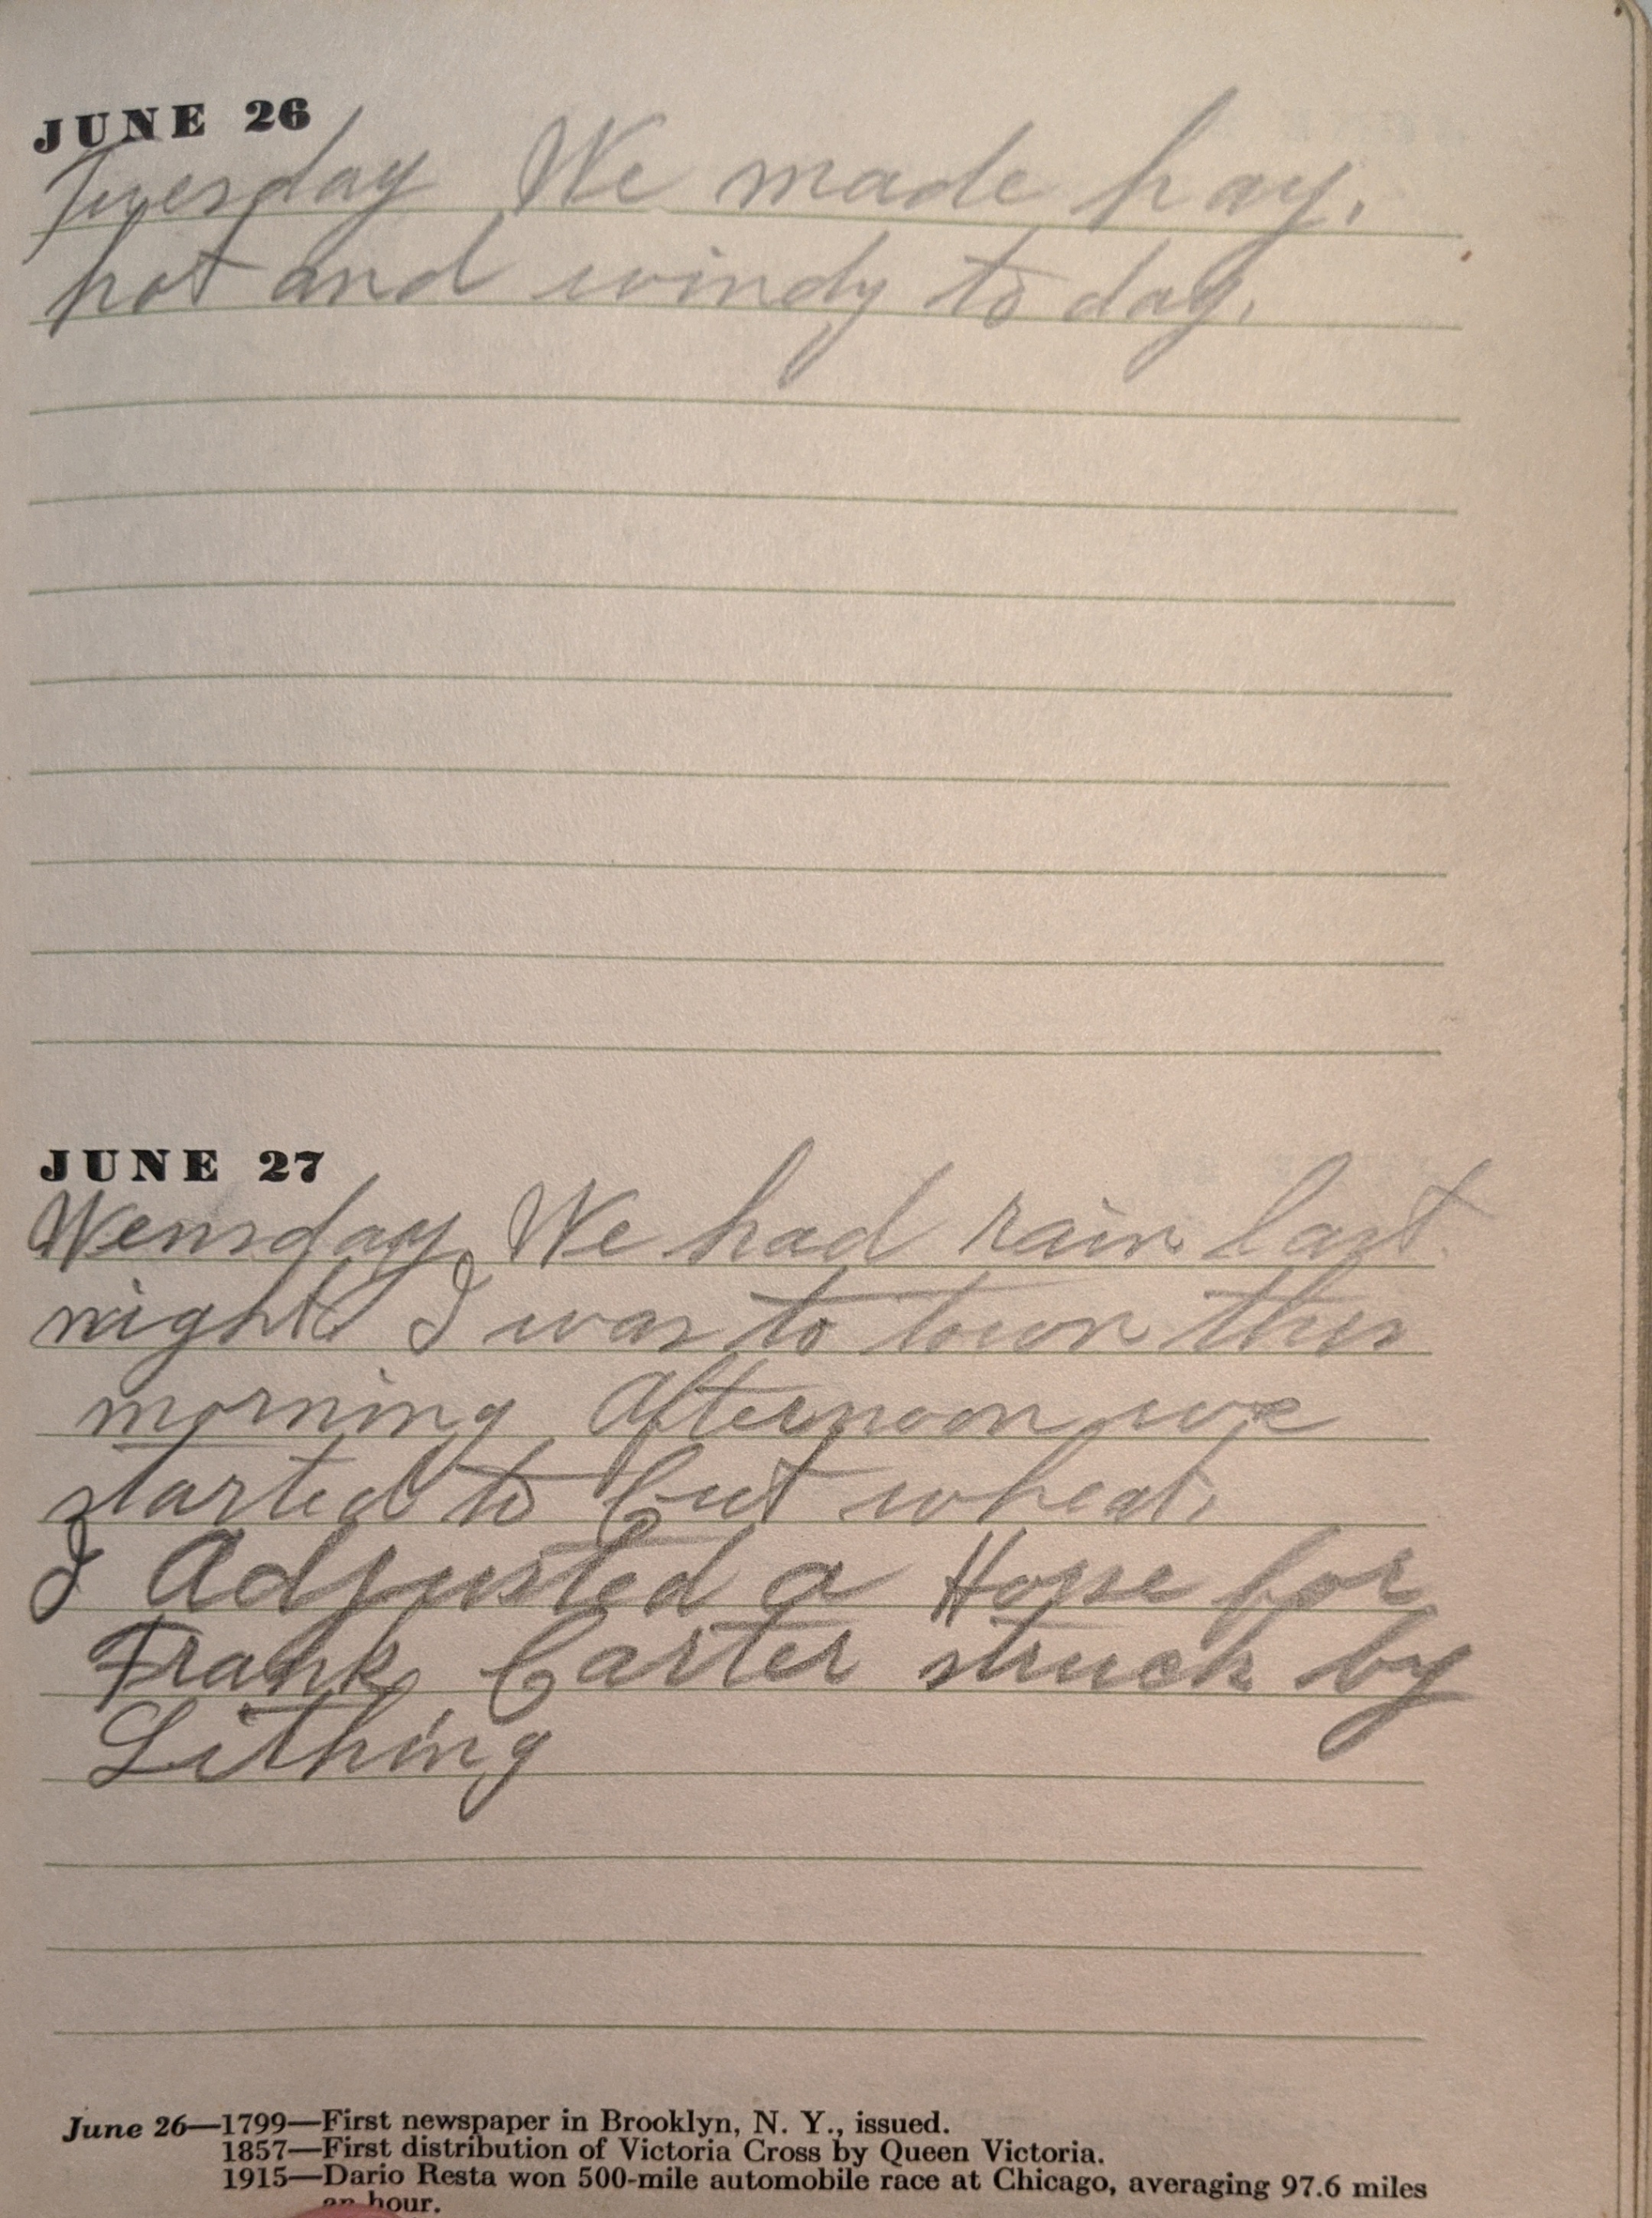 JUNE 26
Tuesday We made hay.
hot and windy to day.
JUNE 27
Wensday, We had rain last
night I was to town this
morning Afternoon we
started to Cut wheat.
I Adjusted a Horse for
Frank Carter struck by
Lithing
June 26—1799—First newspaper in Brooklyn, N. Y., issued.
1857—First distribution of Victoria Cross by Queen Victoria.
1915—Dario Resta won 500-mile automobile race at Chicago, averaging 97.6 miles
an hour.